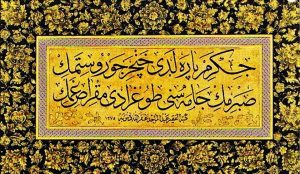 جكرم پاره لدی خنجر جور و ستمك
صبرمك جامه سنی طوغرادی مقراض غمك